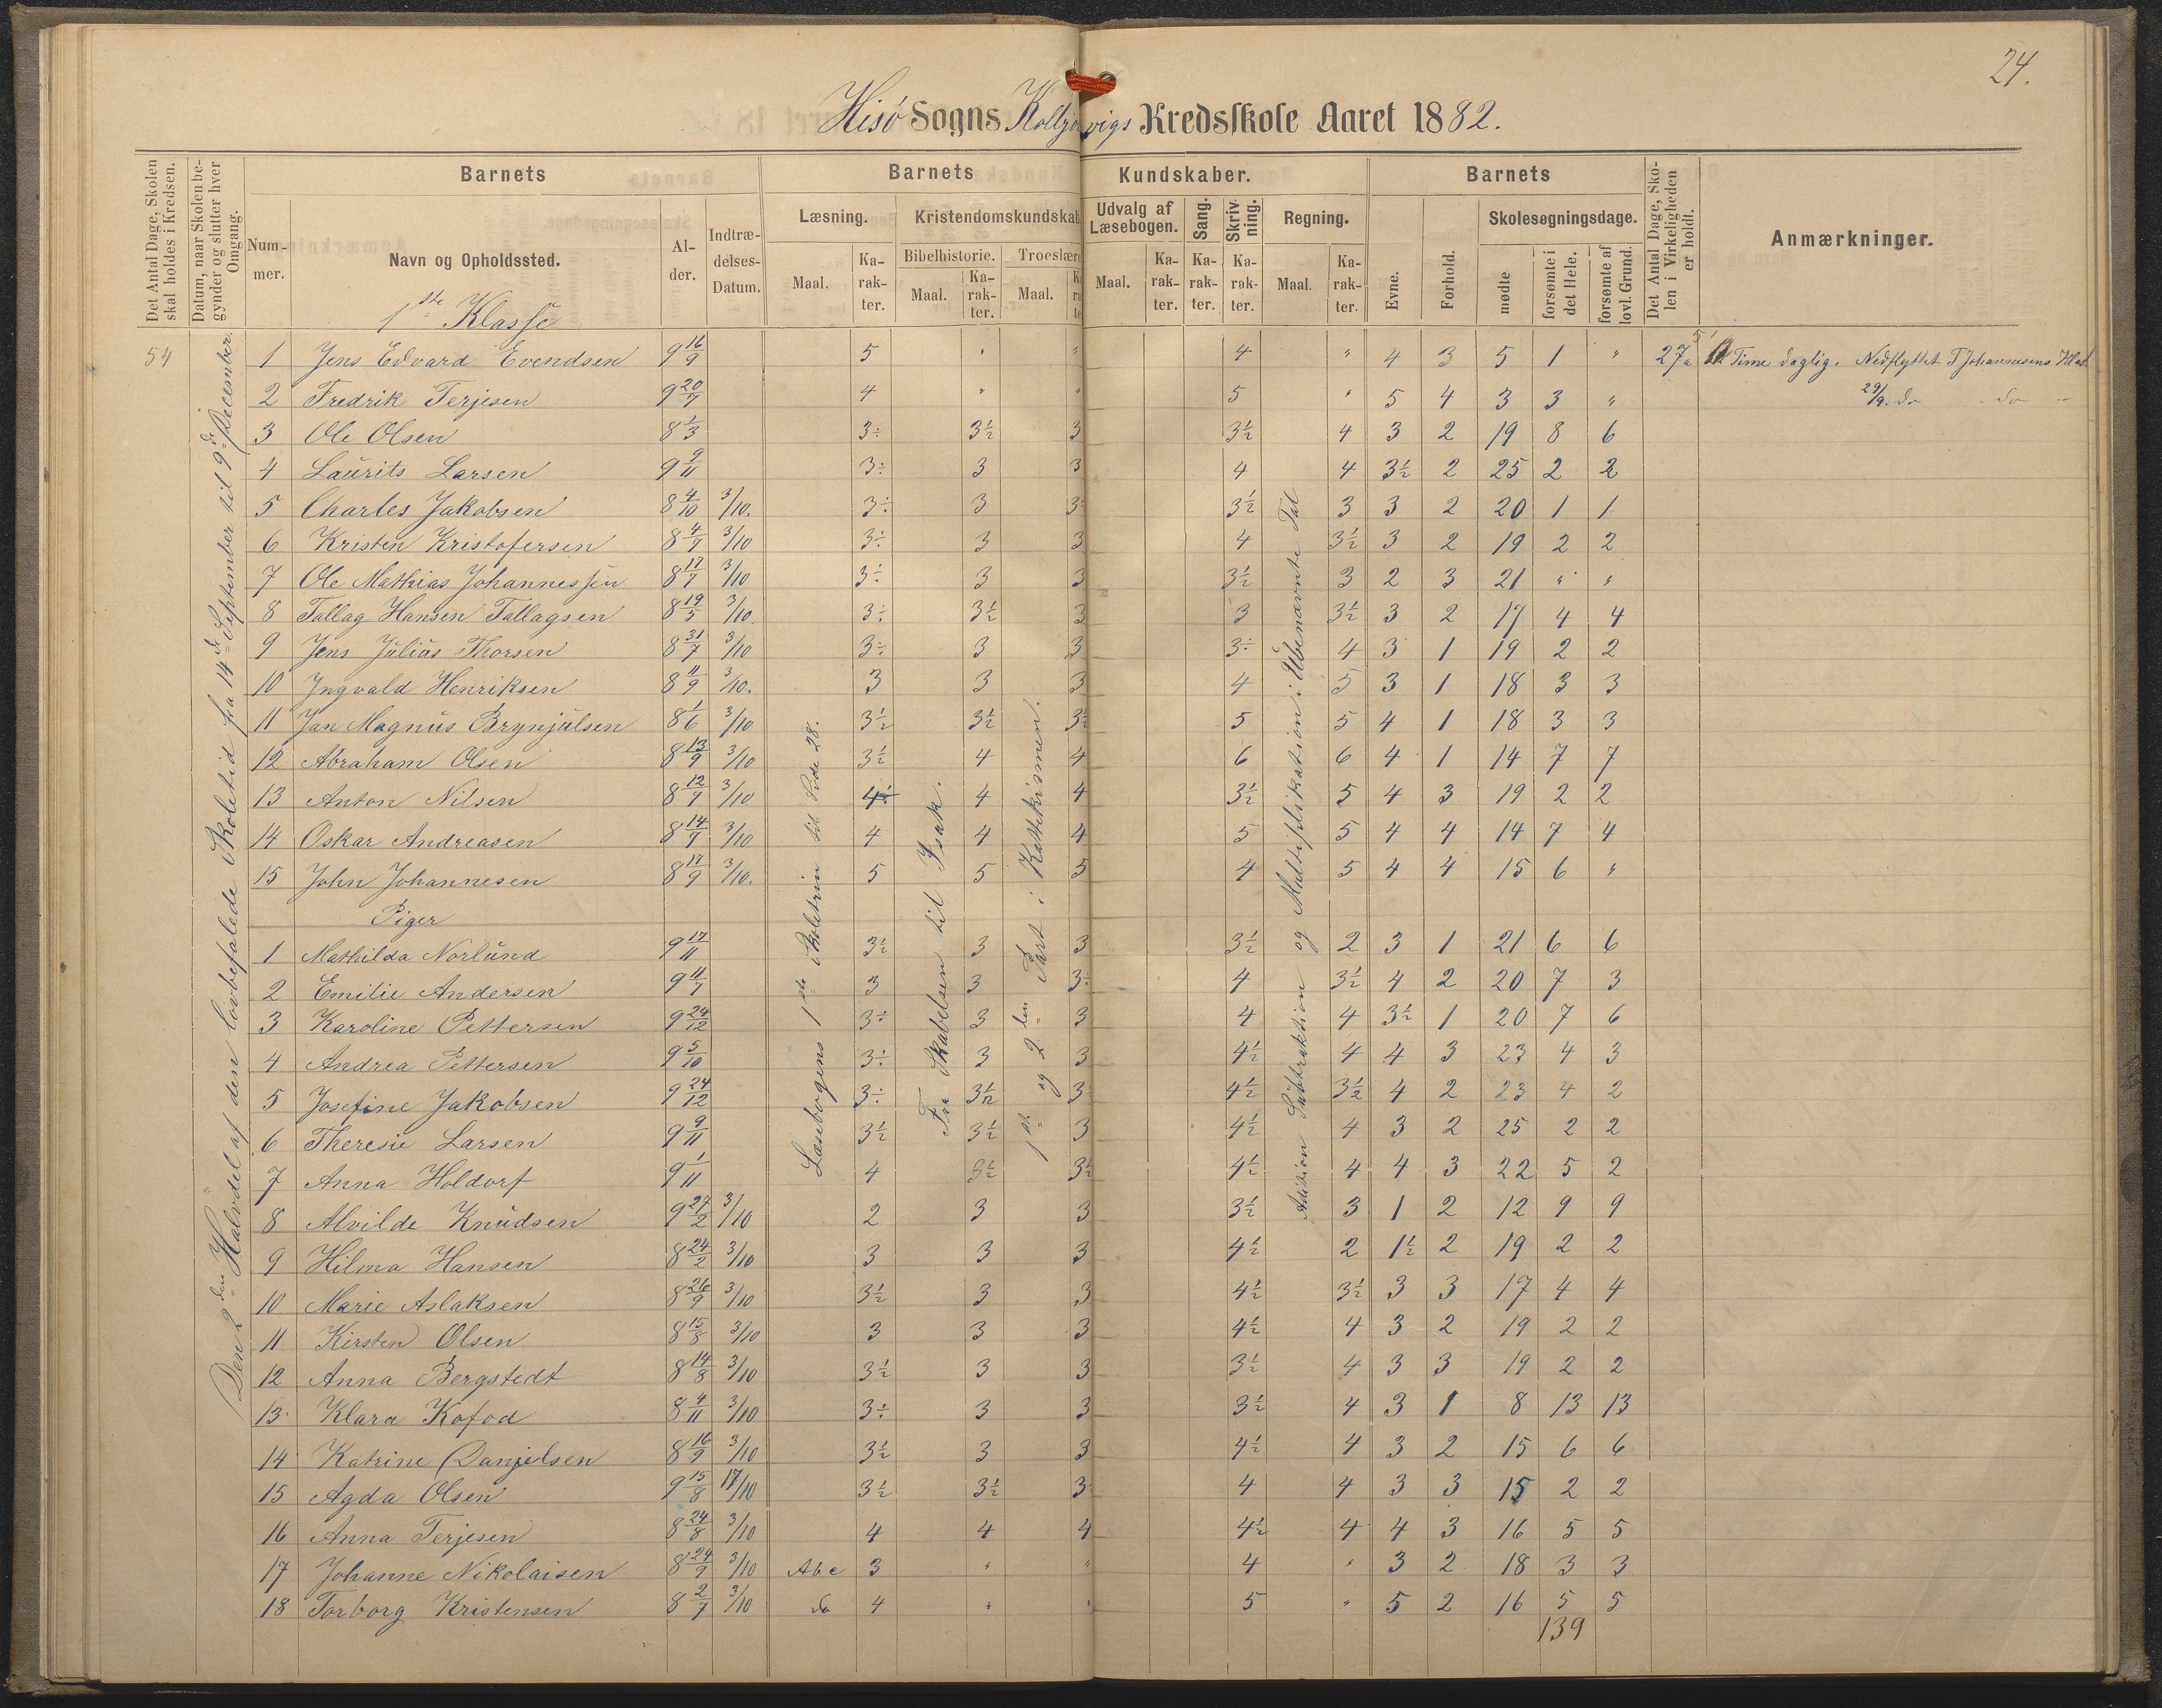 24.
Hisö Sogns Kolbjørnvigs Kredsskole Aaret 1882.
Det Antal Dage, Skolen skal holdes i Kredsen.
Datum, naar Skolen begynder og slutter hver Omgang.
Barnets
Barnets Kundskaber.
Barnets
Det Antal Dage, Skolen i Virkeligheden er holdt.
Anmærkninger.
Nummer.
Navn og Opholdssted.
Alder.
Indtrædelses-Datum.
Læsning.
Kristendomskundskab
Udvalg af Læsebogen.
Sang.
Skrivning.
Regning.
Evne.
Forhold.
Skolesøgningsdage.
Bibelhistorie.
Troeslære
Maal. Karakter. Maal. Karakter. Maal. Maal. Karakter. Karakter. Karakter. Maal. Karakter.
mødte
forsømte i det Hele.
forsømte af lovl. Grund.
1ste Klasse
54
Den 2den Halvdel af den lovbefalede Skoletid fra 14de September til 9de December.
Læsebogens 1ste Skoletrin til Side 28.
Fra Skabelsen til Isak.
1ste og 2den Part i Katekismen.
Addition Subtraktion og Multiplikation i Ubenævnte Tal
1 Jens Edvard Evendsen 9 16/9 5 " " 4 " 4 3 5 1 " 27 Time daglig. Nedflyttet T Johannesens Klas
2 Fredrik Terjesen 9 20/7 4 " " 5 " 5 4 3 3 " 29/9. do do
3 Ole Olsen 8 1/3 3÷ 3½ 3 3½ 4 3 2 19 8 6
4 Laurits Larsen 9 9/11 3÷ 3 3 4 4 3½ 2 25 2 2
5 Charles Jakobsen 8 4/10 3/10. 3÷ 3 3÷ 3½ 3 3 2 20 1 1
6 Kristen Kristofersen 8 4/7 3/10 3÷ 3 3 4 3½ 3 2 19 2 2
7 Ole Mathias Johannessen 8 17/7 3/10 3÷ 3 3 3½ 3 2 3 21 " "
8 Tallag Hansen Tallagsen 8 19/5 3/10. 3÷ 3½ 3 3 3½ 3 2 17 4 4
9 Jens Julius Thorsen 8 31/7 3/10 3÷ 3 3 3÷ 4 3 1 19 2 2
10 Ingvald Henriksen 8 11/9 3/10. 3 3 3 4 5 3 1 18 3 3
11 Jan Magnus Brynjulsen 8 1/6 3/10 3½ 3½ 3½ 5 5 4 1 18 3 3
12 Abraham Olsen 8 13/9 3/10 3½ 4 4 6 6 4 1 14 7 7
13 Anton Nilsen 8 12/7 3/10 4÷ 4 4 3½ 5 4 3 19 2 2
14 Oskar Andreasen 8 14/7 3/10 4 4 4 5 5 4 4 14 7 4
15 John Johannesen 8 17/9 3/10. 5 5 5 4 5 4 4 15 6 "
Piger
1 Mathilda Norlund 9 17/11 3½ 3 3 3½ 2 3 1 21 6 6
2 Emilie Andersen 9 11/7 3 3 3÷ 4 3½ 4 2 20 7 3
3 Karoline Pettersen 9 24/12 3÷ 3 3 4 4 3½ 1 20 7 6
4 Andrea Pettersen 9 5/10 3÷ 3 3 4½ 4 4 3 23 4 3
5 Josefine Jakobsen 9 24/12 3÷ 3½ 3 4½ 3½ 4 2 23 4 2
6 Theresie Larsen 9 9/11 3½ 3½ 3 4½ 4 3 2 25 2 2
7 Anna Holdorf 9 1/11 4 3½ 3½ 4½ 4 4 3 22 5 2
8 Alvilde Knudsen 9 27/2 3/10 2 3 3 3½ 3 1 2 12 9 9
9 Hilma Hansen 8 24/2 3/10 3 3 3 4½ 2 1½ 2 19 2 2
10 Marie Aslaksen 8 26/9 3/10 3½ 3 3 4½ 3½ 3 3 17 4 4
11 Kirsten Olsen 8 15/8 3/10 3 3 3 4½ 4 3 2 19 2 2
12 Anna Bergstedt 8 14/8 3/10 3½ 3 3 3½ 4 3 3 19 2 2
13 Klara Kofod 8 4/11 3/10 3÷ 3 3 3½ 4 3 1 8 13 13
14 Katrine Danjelsen 8 16/9 3/10 3½ 3 3 4½ 4 3 2 15 6 6
15 Agda Olsen 9 15/8 17/10 3½ 3½ 3 4 4 3 3 15 2 2
16 Anna Terjesen 8 24/8 3/10 4 4 4 4½ 4 4 3 16 5 5
17 Johanne Nikolaisen 8 24/9 3/10 Abc 3 " " 4 " 3 2 18 3 3
18 Torborg Kristensen 8 2/7 3/10 do 4 " " 5 " 5 2 16 5 5
139